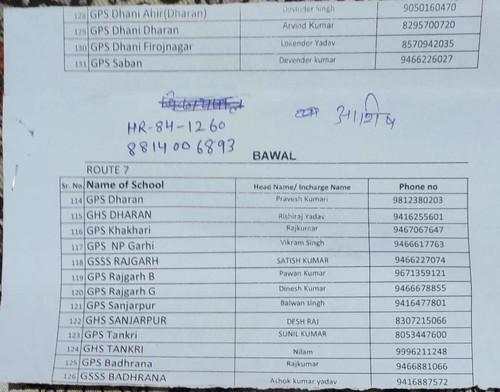 128 GPS Dhani Ahir(Dharan) Devinder Singh 9050160470
129 GPS Dhani Dharan Arvind Kumar 8295700720
130 GPS Dhani Firojnagar Lokender Yadav 8570942035
131 GPS Saban Devender kumar 9466226027
HR-84-1260
8814006893
BAWAL
ROUTE 7
Sr. No. Name of School Head Name/ Incharge Name Phone no
114 GPS Dharan Pravesh Kumari 9812380203
115 GHS DHARAN Rishiraj Yadav 9416255601
116 GPS Khakhari Rajkumar 9467067647
117 GPS NP Garhi Vikram Singh 9466617763
118 GSSS RAJGARH SATISH KUMAR 9466227074
119 GPS Rajgarh B Pawan Kumar 9671359121
120 GPS Rajgarh G Dinesh Kumar 9466678855
121 GPS Sanjarpur Balwan singh 9416477801
122 GHS SANJARPUR DESH RAJ 8307215066
123 GPS Tankri SUNIL KUMAR 8053447600
124 GHS TANKRI Nilam 9996211248
125 GPS Badhrana Rajkumar 9466881066
126 GSSS BADHRANA Ashok kumar yadav 9416887572